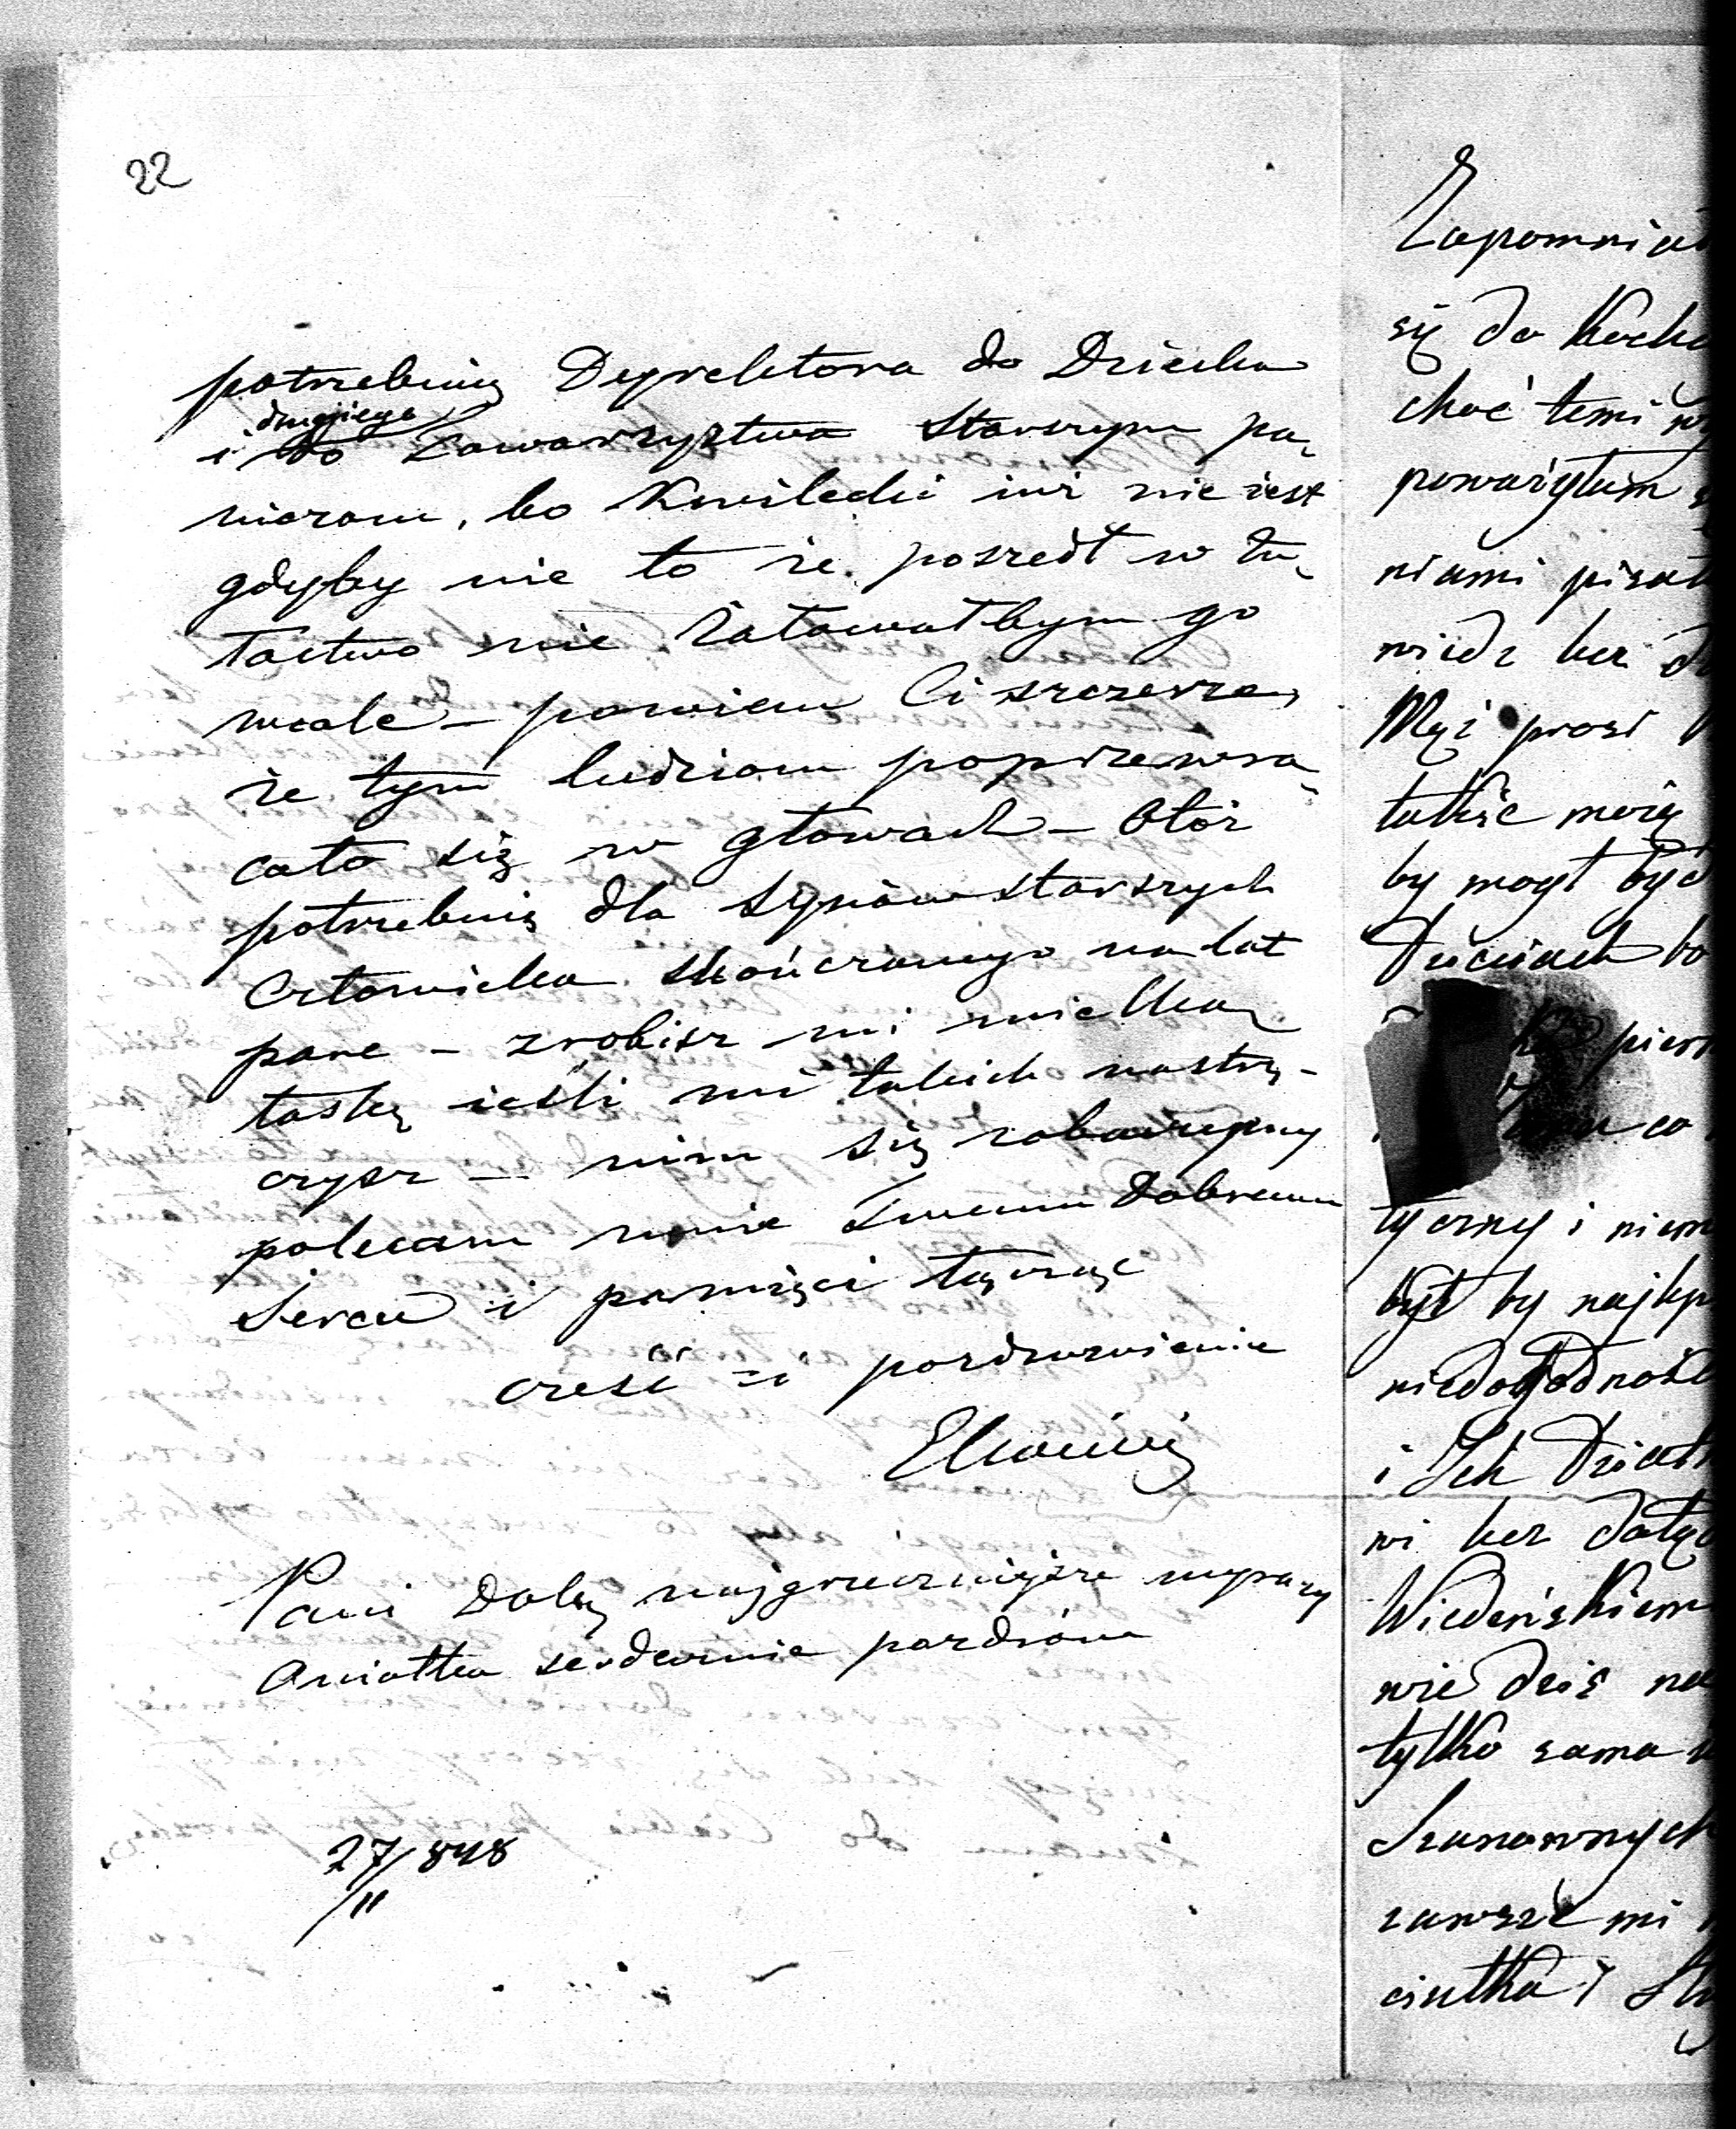 22
potrzebuię Dyrektora do Dziecka
drugiego
i do Towarzystwa starszym pa-
niczom, bo Kwilecki iuż nie iest
gdyby nie to że poszedł w tu-
łactwo nie żałowałbym go
wcale – powiem Ci szczerze
że tym ludziom poprzewra-
cało się w głowach – Otóż
potrzebuię dla Synów starszych
Człowieka skończonego na lat
parę – zrobisz mi wielką
łaskę ieśli mi takich nastrę-
czysz – nim się zobaczymy
polecam mnie Twemu Dobremu
Sercu i pamięci łącząc
cześć i pozdrowienie
Pani Dobr. najgrzeczniejsze wyrazy
Aniołka serdecznie pozdrów
27/11 848
Zapomniał
się do Kocha
choć temi wy
poważyłem
niami pisać
wiedz bez
Mąż prosi
także moię
by mogł być
Dzieciach bo
pierw
co
tyczny i niem
był by najlep
niedogodność
i Ich Dziatk
wi bez
Wiedeńskiem
wie Dziś na
tylko sama
Szanownych
zawsze mi